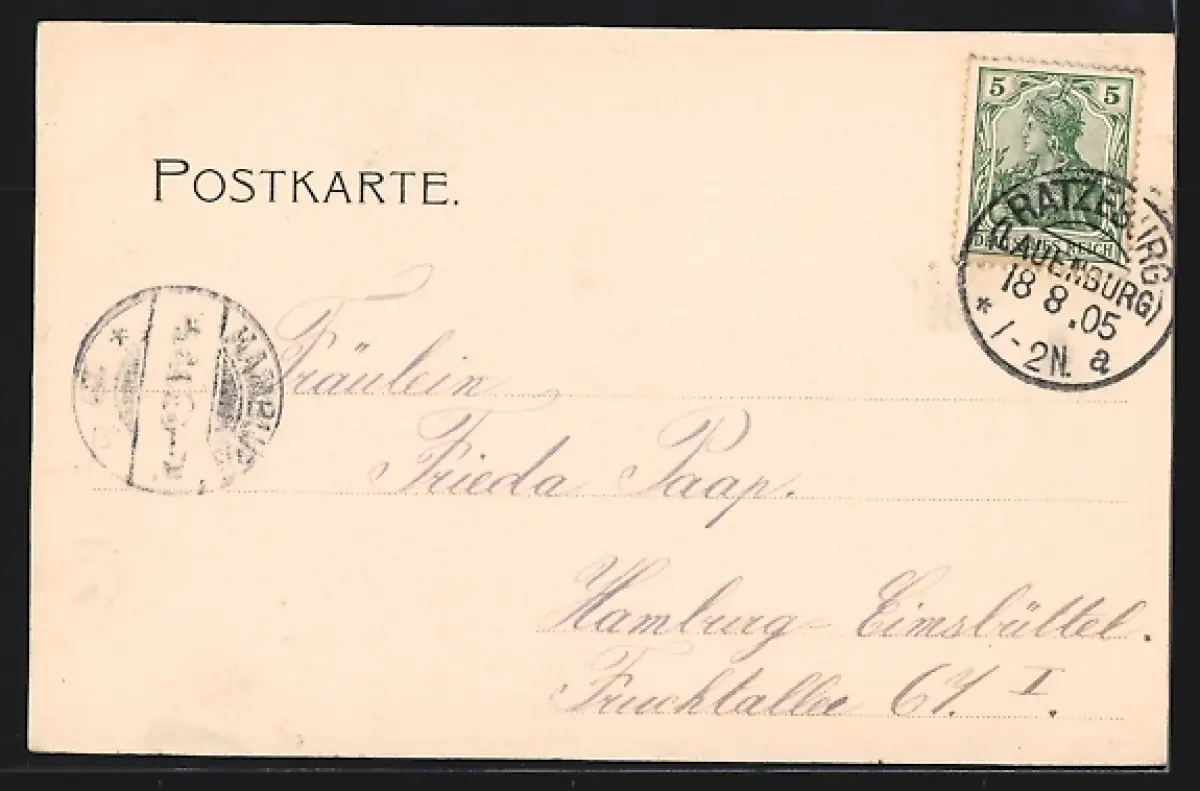 POSTKARTE.
5 5
DEUTSCHES REICH
RATZEBURG
(LAUENBURG)
18 8.05
* 1-2N. a
HAMBURG
*
Fräulein
Frieda Paap.
Hamburg-Eimsbüttel.
Fruchtallee I.